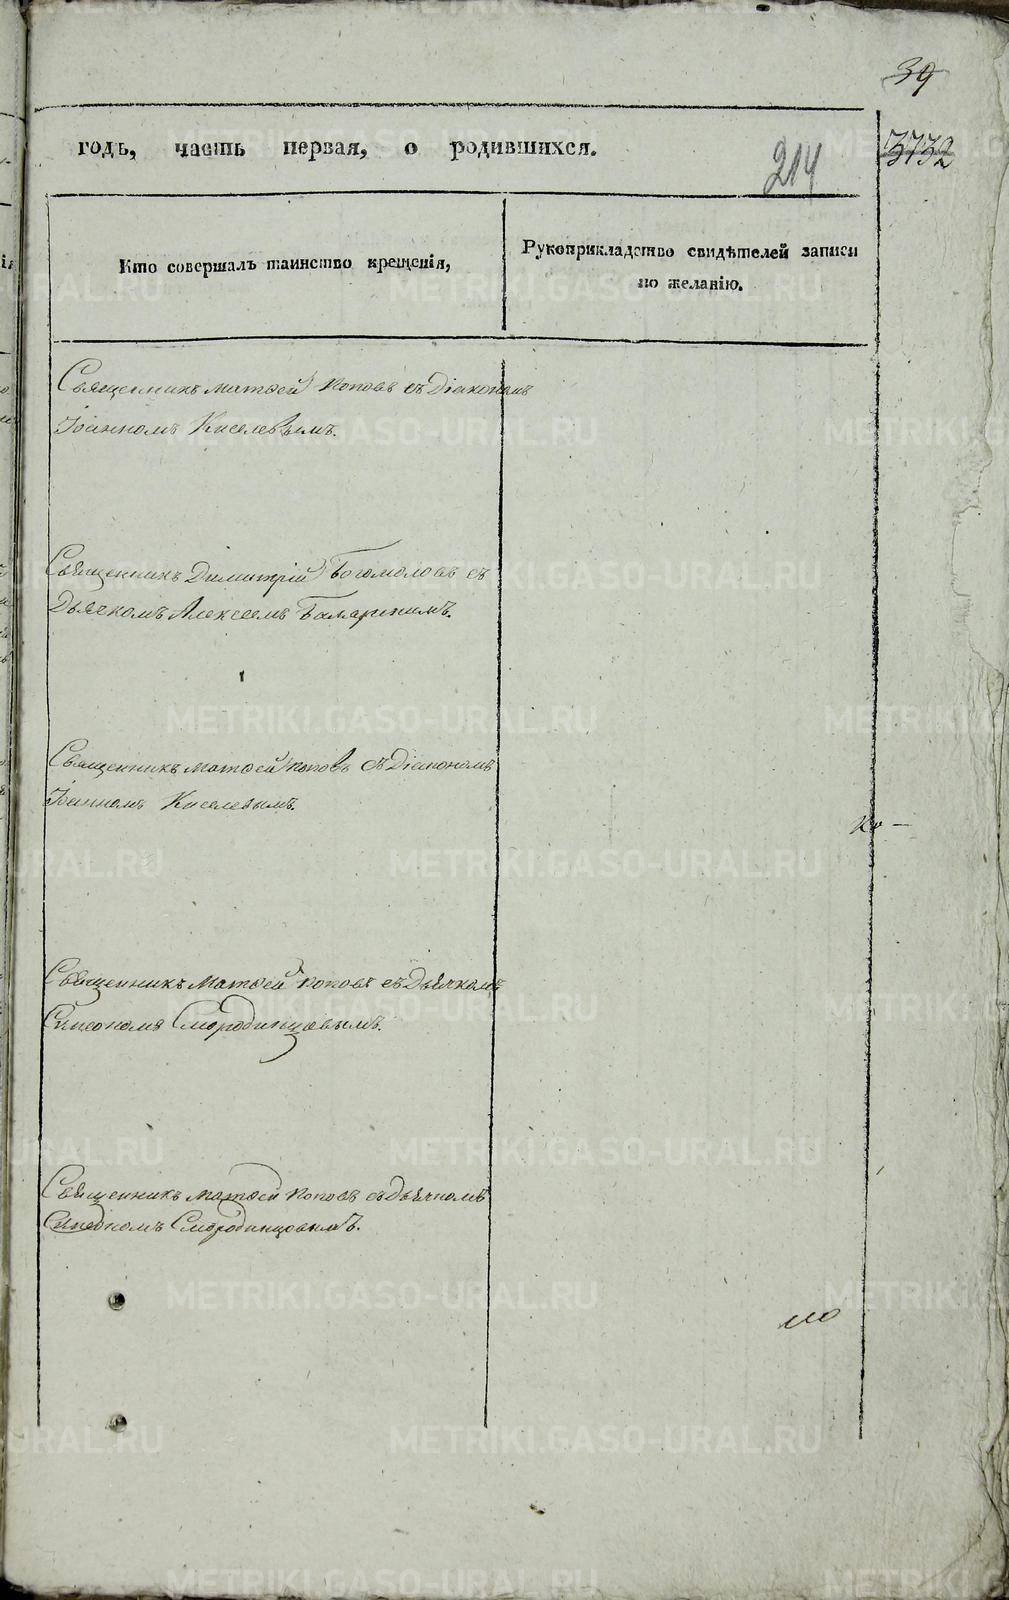 39
годъ, часть первая, о родившихся.
214
3732
Кто совершалъ таинство крещенія,
Рукоприкладство свидѣтелей записи
по желанію.
Священникъ Матѳей Поповъ съ Діакономъ
Іоанномъ Киселевымъ.
Священникъ Димитрій Богомоловъ съ
Дьячкомъ Алексеемъ
Священникъ Матѳей Поповъ съ Діакономъ
Іоанномъ Киселевымъ.
Ко-
Священникъ Матѳей Поповъ съ Дьячкомъ
Симеономъ Смородинцовымъ.
Священникъ Матѳей Поповъ съ Дьячкомъ
Симеономъ Смородинцовымъ.
METRIKI.GASO-URAL.RU